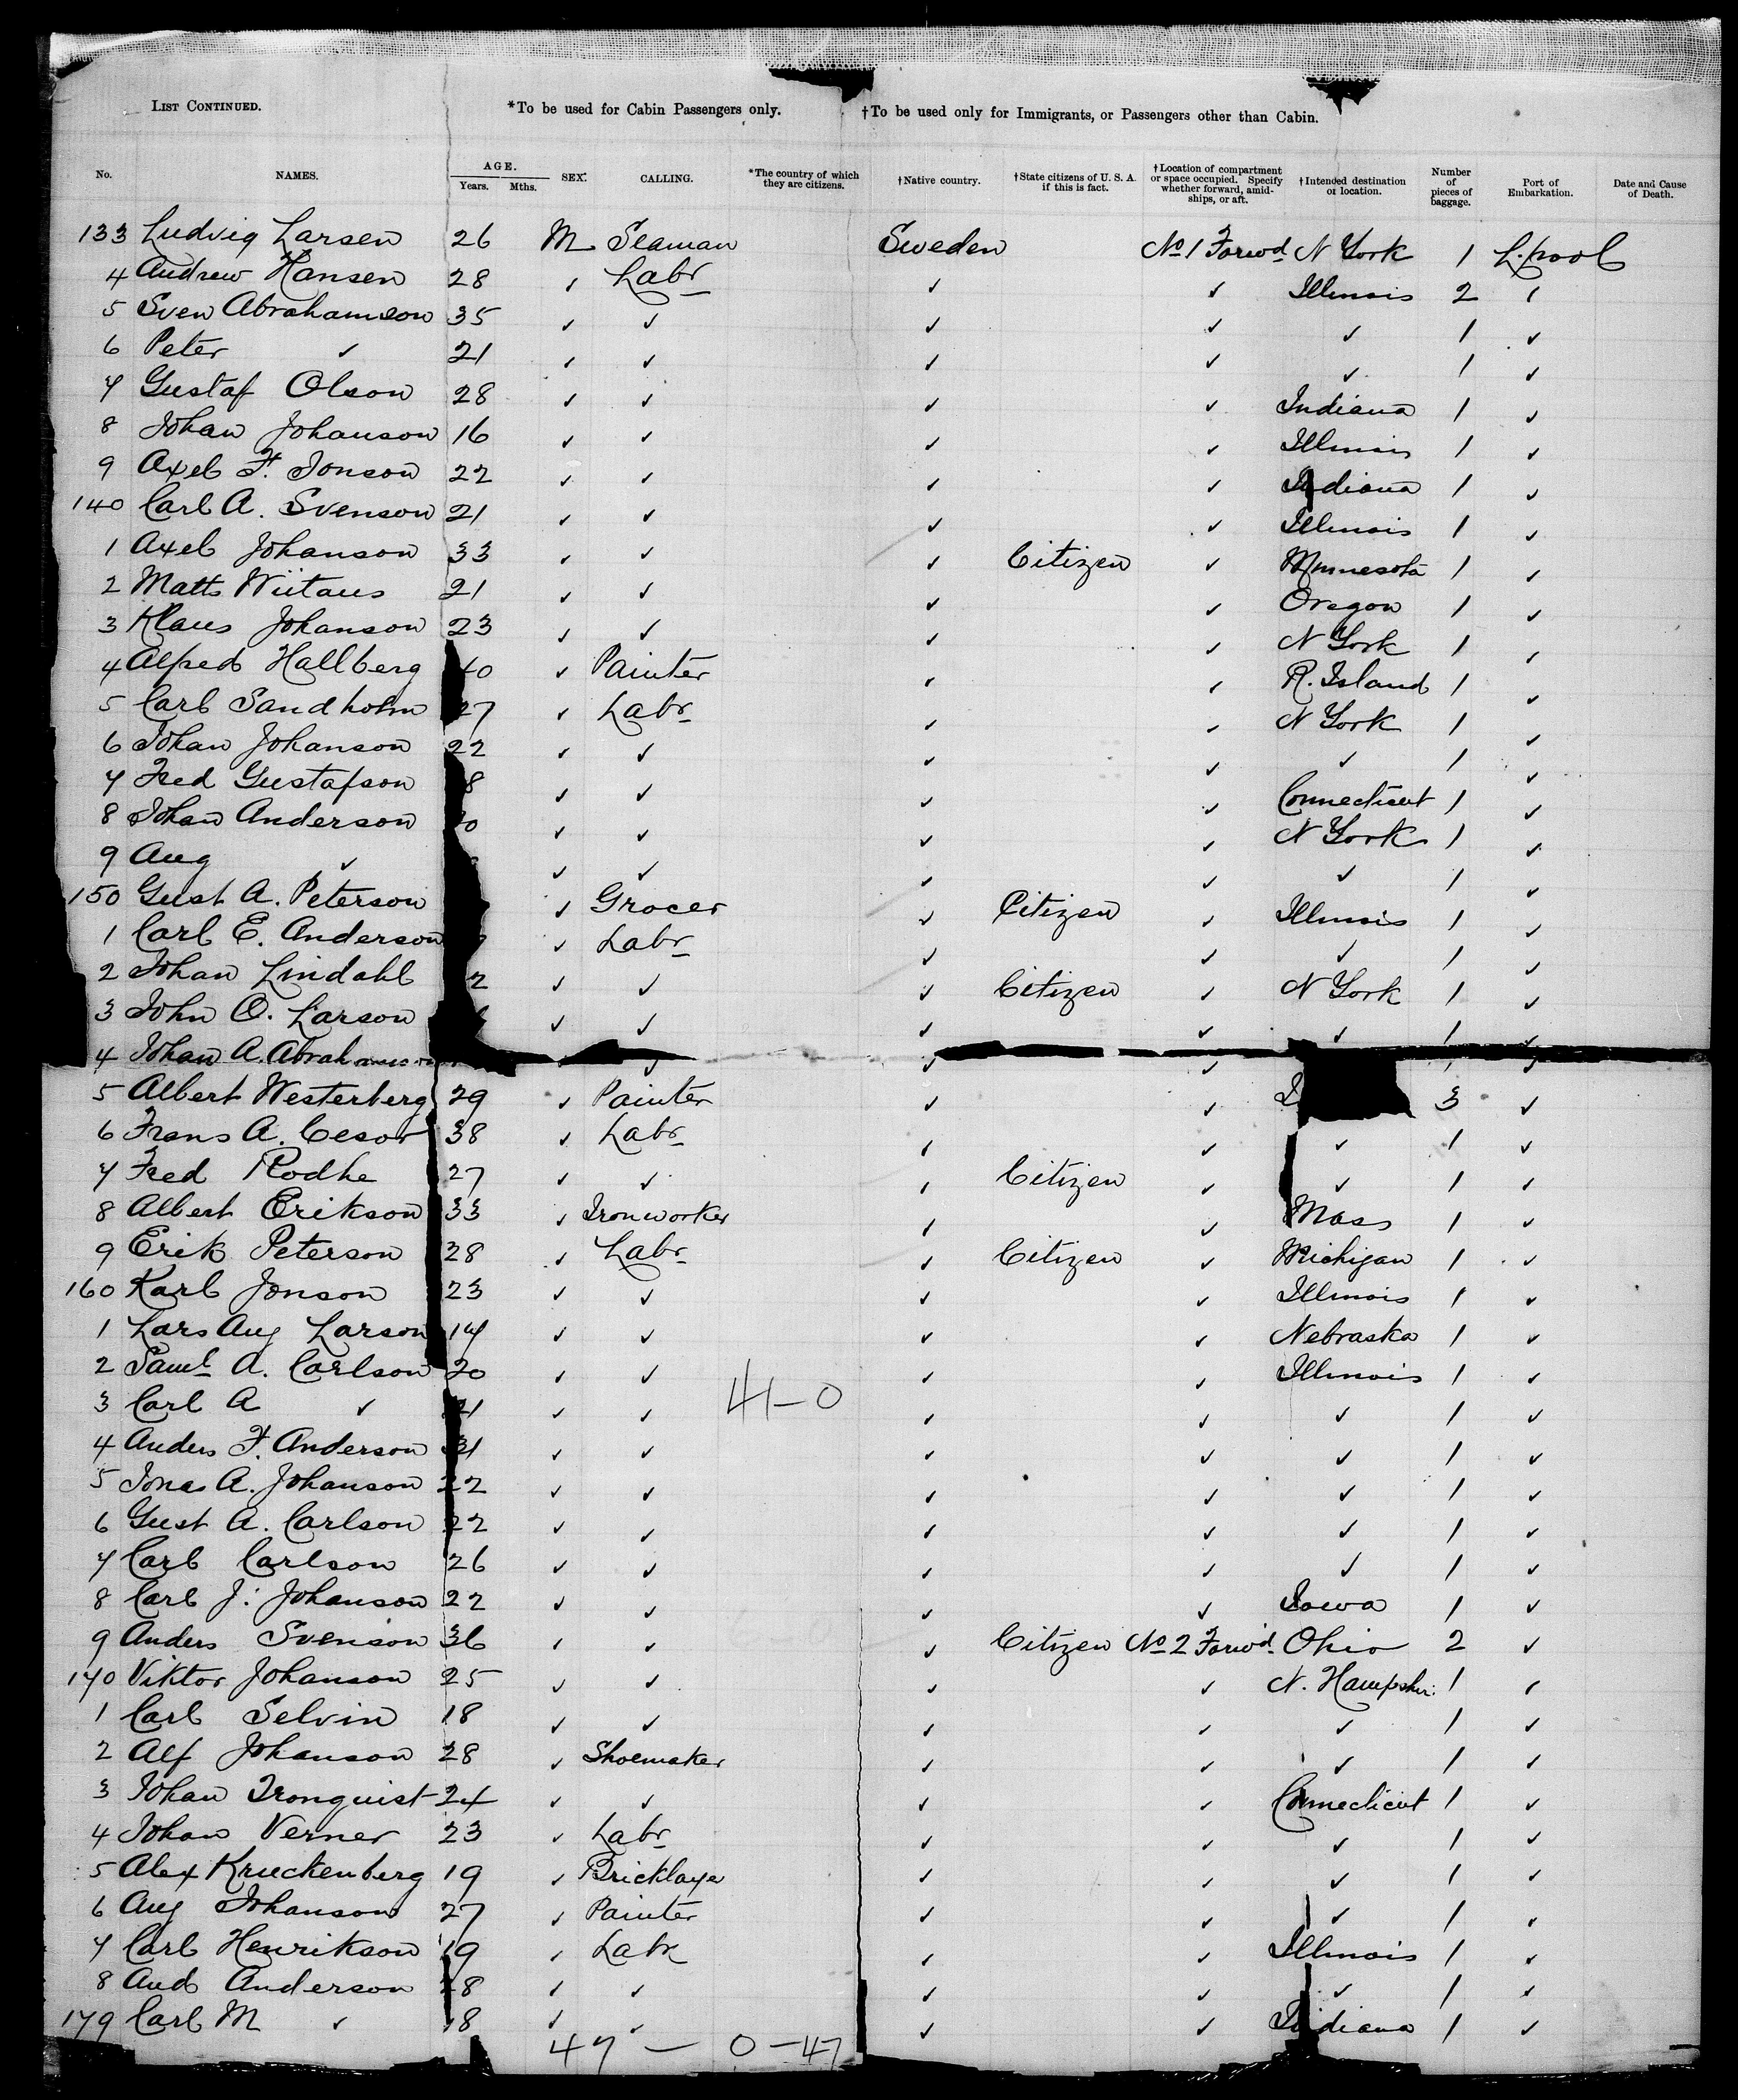 LIST CONTINUED. *To be used for Cabin Passengers only. †To be used only for Immigrants, or Passengers other than Cabin.
No. NAMES. AGE. Years. Mths. SEX. CALLING. *The country of which they are citizens. †Native country. †State citizens of U. S. A. if this is fact. †Location of compartment or space occupied. Specify whether forward, amidships, or aft. †Intended destination or location. Number of pieces of baggage. Port of Embarkation. Date and Cause of Death.
133 Ludvig Larsen 26 M Seaman Sweden No 1 Forwd N York 1 L.pool
4 Andrew Hansen 28 ✓ Labr ✓ ✓ Illinois 2 ✓
5 Sven Abrahamson 35 ✓ ✓ ✓ ✓ ✓ 1 ✓
6 Peter ✓ 21 ✓ ✓ ✓ ✓ ✓ 1 ✓
7 Gustaf Olson 28 ✓ ✓ ✓ ✓ Indiana 1 ✓
8 Johan Johanson 16 ✓ ✓ ✓ ✓ Illinois 1 ✓
9 Axel F. Jonson 22 ✓ ✓ ✓ ✓ Indiana 1 ✓
140 Carl A. Svenson 21 ✓ ✓ ✓ ✓ Illinois 1 ✓
1 Axel Johanson 33 ✓ ✓ ✓ Citizen ✓ Minnesota 1 ✓
2 Matts Wiitaus 21 ✓ ✓ ✓ ✓ Oregon 1 ✓
3 Klaus Johanson 23 ✓ ✓ ✓ ✓ N York 1 ✓
4 Alfred Hallberg 40 ✓ Painter ✓ ✓ R. Island 1 ✓
5 Carl Sandholm 27 ✓ Labr ✓ ✓ N York 1 ✓
6 Johan Johanson 22 ✓ ✓ ✓ ✓ ✓ 1 ✓
7 Fred Gustafson 8 ✓ ✓ ✓ ✓ Connecticut 1 ✓
8 Johan Anderson 0 ✓ ✓ ✓ ✓ N York 1 ✓
9 Aug ✓ ✓ ✓ ✓ ✓ ✓ 1 ✓
150 Gust A. Peterson ✓ Grocer ✓ Citizen ✓ Illinois 1 ✓
1 Carl E. Anderson ✓ Labr ✓ ✓ ✓ 1 ✓
2 Johan Lindahl 2 ✓ ✓ ✓ Citizen ✓ N York 1 ✓
3 John O. Larson ✓ ✓ ✓ ✓ ✓ 1 ✓
4 Johan A. Abrahamson ✓ ✓ ✓ ✓
5 Albert Westerberg 29 ✓ Painter ✓ ✓ 3 ✓
6 Frans A. Cesor 38 ✓ Labr ✓ ✓ ✓ 1 ✓
7 Fred Rodhe 27 ✓ ✓ ✓ Citizen ✓ ✓ 1 ✓
8 Albert Erikson 33 ✓ Ironworker ✓ ✓ Mass 1 ✓
9 Erik Peterson 28 ✓ Labr ✓ Citizen ✓ Michigan 1 ✓
160 Karl Jonson 23 ✓ ✓ ✓ ✓ Illinois 1 ✓
1 Lars Aug Larson 17 ✓ ✓ ✓ ✓ Nebraska 1 ✓
2 Saml A. Carlson 20 ✓ ✓ ✓ ✓ Illinois 1 ✓
3 Carl A ✓ 21 ✓ ✓ 41-0 ✓ ✓ ✓ 1 ✓
4 Anders F. Anderson 31 ✓ ✓ ✓ ✓ ✓ 1 ✓
5 Jonas A. Johanson 22 ✓ ✓ ✓ ✓ ✓ 1 ✓
6 Gust A. Carlson 22 ✓ ✓ ✓ ✓ ✓ 1 ✓
7 Carl Carlson 26 ✓ ✓ ✓ ✓ ✓ 1 ✓
8 Carl J. Johanson 22 ✓ ✓ ✓ ✓ Iowa 1 ✓
9 Anders Svenson 36 ✓ ✓ ✓ Citizen No 2 Forwd. Ohio 2 ✓
170 Viktor Johanson 25 ✓ ✓ ✓ ✓ N. Hampshr. 1 ✓
1 Carl Selvin 18 ✓ ✓ ✓ ✓ ✓ 1 ✓
2 Alf Johanson 28 ✓ Shoemaker ✓ ✓ ✓ 1 ✓
3 Johan Tronquist 24 ✓ ✓ ✓ ✓ Connecticut 1 ✓
4 Johan Verner 23 ✓ Labr ✓ ✓ ✓ 1 ✓
5 Alex Kruckenberg 19 ✓ Bricklaye ✓ ✓ ✓ 1 ✓
6 Aug Johanson 27 ✓ Painter ✓ ✓ ✓ 1 ✓
7 Carl Henrikson 19 ✓ Labr ✓ ✓ Illinois 1 ✓
8 And Anderson 28 ✓ ✓ ✓ ✓ ✓ 1 ✓
179 Carl M ✓ 18 ✓ ✓ ✓ ✓ Indiana 1 ✓
47 — 0-47